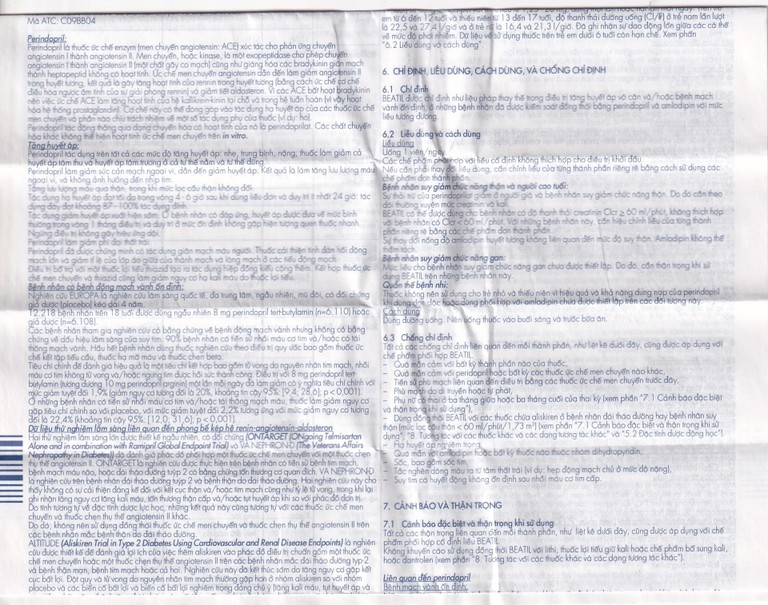 Mã ATC: C09BB04
Perindopril:
Perindopril là thuốc ức chế enzym (men chuyển angiotensin: ACE) xúc tác cho phản ứng chuyển
angiotensin I thành angiotensin II. Men chuyển, hoặc kinase, là một exopeptidase cho phép chuyển
angiotensin I thành angiotensin II (một chất gây co mạch) cũng như giáng hóa các bradykinin giãn mạch
thành heptapeptid không có hoạt tính. Ức chế men chuyển angiotensin dẫn đến làm giảm angiotensin II
trong huyết tương, kết quả là gây tăng hoạt tính của renin trong huyết tương (bằng cách ức chế cơ chế
điều hòa ngược âm tính của sự giải phóng renin) và giảm tiết aldosteron. Vì các ACE bất hoạt bradykinin
nên việc ức chế ACE làm tăng hoạt tính của hệ kallikrein-kinin tại chỗ và trong hệ tuần hoàn (vì vậy hoạt
hóa hệ thống prostaglandin). Cơ chế này có thể đóng góp vào tác dụng hạ huyết áp của các thuốc ức chế
men chuyển và phần nào chịu trách nhiệm về một số tác dụng phụ của thuốc (ví dụ: ho).
Perindopril tác động thông qua dạng chuyển hóa có hoạt tính của nó là perindoprilat. Các chất chuyển
hóa khác không thể hiện hoạt tính ức chế men chuyển trên in vitro.
Tăng huyết áp:
Perindopril tác dụng trên tất cả các mức độ tăng huyết áp: nhẹ, trung bình, nặng, thuốc làm giảm cả
huyết áp tâm thu và huyết áp tâm trương ở cả tư thế nằm và tư thế đứng.
Perindopril làm giảm sức cản mạch ngoại vi, dẫn đến giảm huyết áp. Kết quả là làm tăng lưu lượng máu
ngoại vi, và không ảnh hưởng đến nhịp tim.
Tăng lưu lượng máu qua thận, trong khi mức lọc cầu thận không đổi.
Tác dụng hạ huyết áp đạt tối đa trong vòng 4 - 6 giờ sau khi dùng liều đơn và duy trì ít nhất 24 giờ: tác
dụng đáy đạt khoảng 87 - 100% tác dụng đỉnh.
Tác dụng giảm huyết áp xuất hiện sớm. Ở bệnh nhân có đáp ứng, huyết áp được đưa về mức bình
thường trong vòng 1 tháng điều trị và duy trì ở mức ổn định không gặp hiện tượng quen thuốc nhanh.
Ngừng điều trị không gây hiệu ứng dội.
Perindopril làm giảm phì đại thất trái.
Perindopril đã được chứng minh có tác dụng giãn mạch máu người. Thuốc cải thiện tính đàn hồi động
mạch lớn và giảm tỉ lệ của lớp áo giữa của thành mạch và lòng mạch ở các tiểu động mạch.
Điều trị bổ trợ với một thuốc lợi tiểu thiazid tạo ra tác dụng hiệp đồng kiểu cộng thêm. Kết hợp thuốc ức
chế men chuyển và thiazid cũng làm giảm nguy cơ hạ kali máu do thuốc lợi tiểu.
Bệnh nhân có bệnh động mạch vành ổn định:
Nghiên cứu EUROPA là nghiên cứu lâm sàng quốc tế, đa trung tâm, ngẫu nhiên, mù đôi, có đối chứng
giả dược (placebo) kéo dài 4 năm.
12.218 bệnh nhân trên 18 tuổi được dùng ngẫu nhiên 8 mg perindopril tert-butylamin (n=6.110) hoặc
giả dược (n=6.108).
Các bệnh nhân tham gia nghiên cứu có bằng chứng về bệnh động mạch vành nhưng không có bằng
chứng về dấu hiệu lâm sàng của suy tim. 90% bệnh nhân có tiền sử nhồi máu cơ tim và/hoặc có tái
thông mạch vành. Hầu hết bệnh nhân dùng thuốc nghiên cứu theo điều trị quy ước bao gồm thuốc ức
chế kết tập tiểu cầu, thuốc hạ mỡ máu và thuốc chẹn beta.
Tiêu chí chính để đánh giá hiệu quả là một tiêu chí kết hợp bao gồm tử vong do nguyên nhân tim mạch, nhồi
máu cơ tim không tử vong và/hoặc ngưng tim được hồi sức thành công. Điều trị với 8 mg perindopril tert-
butylamin (tương đương 10 mg perindopril arginin) một lần mỗi ngày đã làm giảm có ý nghĩa tiêu chí chính với
mức giảm tuyệt đối 1,9% (giảm nguy cơ tương đối là 20%, khoảng tin cậy 95%: [9,4; 28,6], p < 0,001).
Ở những bệnh nhân có tiền sử nhồi máu cơ tim và/hoặc tái thông mạch máu, thuốc làm giảm nguy cơ
gặp tiêu chí chính so với placebo, với mức giảm tuyệt đối 2,2% tương ứng với mức giảm nguy cơ tương
đối là 22,4% (khoảng tin cậy 95%: [12,0; 31,6]; p < 0,001).
Dữ liệu thử nghiệm lâm sàng liên quan đến phong bế kép hệ renin-angiotensin-aldosteron
Hai thử nghiệm lâm sàng lớn được thiết kế ngẫu nhiên, có đối chứng (ONTARGET (ONgoing Telmisartan
Alone and in combination with Ramipril Global Endpoint Trial) và VA NEPHRON-D (The Veterans Affairs
Nephropathy in Diabetes)) đã đánh giá phác đồ phối hợp một thuốc ức chế men chuyển với một thuốc chẹn
thụ thể angiotensin II. ONTARGET là nghiên cứu được thực hiện trên bệnh nhân có tiền sử bệnh tim mạch,
bệnh mạch máu não, hoặc đái tháo đường tuýp 2 có bằng chứng tổn thương cơ quan đích. VA NEPHRON-D
là nghiên cứu trên bệnh nhân đái tháo đường tuýp 2 và bệnh thận do đái tháo đường. Hai nghiên cứu này cho
thấy không có sự cải thiện đáng kể đối với kết cục thận và/hoặc tim mạch cũng như tỷ lệ tử vong, trong khi lại
ghi nhận tăng nguy cơ tăng kali máu, tổn thương thận cấp và/hoặc tụt huyết áp khi so với phác đồ đơn trị.
Do tính tương tự về đặc tính dược lực học, những kết quả này cũng tương tự với các thuốc ức chế men
chuyển và thuốc chẹn thụ thể angiotensin II khác.
Do đó, không nên sử dụng đồng thời thuốc ức chế men chuyển và thuốc chẹn thụ thể angiotensin II trên
các bệnh nhân mắc bệnh thận do đái tháo đường.
ALTITUDE (Aliskiren Trial in Type 2 Diabetes Using Cardiovascular and Renal Disease Endpoints) là nghiên
cứu được thiết kế để đánh giá lợi ích của việc thêm aliskiren vào phác đồ điều trị chuẩn gồm một thuốc ức
chế men chuyển hoặc một thuốc chẹn thụ thể angiotensin II trên các bệnh nhân mắc đái tháo đường týp 2
và bệnh thận mạn, bệnh tim mạch hoặc cả hai. Nghiên cứu này đã kết thúc sớm do tăng nguy cơ gặp kết
cục bất lợi. Đột quỵ và tử vong do nguyên nhân tim mạch thường gặp hơn ở nhóm aliskiren so với nhóm
placebo và các biến cố bất lợi và biến cố bất lợi nghiêm trọng đáng chú ý (tăng kali máu, tụt huyết áp và
em từ 6 đến 12 tuổi và thiếu niên từ 13 đến 17 tuổi, độ thanh thải đường uống (CL/F) ở trẻ nam lần lượt
là 22,5 và 27,4 l/giờ và ở trẻ nữ là 16,4 và 21,3 l/giờ. Đã ghi nhận sự dao động lớn giữa các cá thể
về mức độ phơi nhiễm. Dữ liệu về sử dụng thuốc trên trẻ em dưới 6 tuổi còn hạn chế. Xem phần
"6.2 Liều dùng và cách dùng"
6. CHỈ ĐỊNH, LIỀU DÙNG, CÁCH DÙNG, VÀ CHỐNG CHỈ ĐỊNH
6.1 Chỉ định
BEATIL được chỉ định như liệu pháp thay thế trong điều trị tăng huyết áp vô căn và/hoặc bệnh mạch
vành ổn định, ở những bệnh nhân đã được kiểm soát đồng thời bằng perindopril và amlodipin với mức
liều tương đương.
6.2 Liều dùng và cách dùng
Liều dùng
Uống 1 viên/ngày.
Các chế phẩm phối hợp với liều cố định không thích hợp cho điều trị khởi đầu.
Nếu cần phải thay đổi liều dùng, cần chỉnh liều của từng thành phần riêng rẽ bằng cách sử dụng các
chế phẩm đơn thành phần.
Bệnh nhân suy giảm chức năng thận và người cao tuổi:
Sự thải trừ của perindoprilat giảm ở người già và bệnh nhân suy giảm chức năng thận. Do đó cần theo
dõi thường xuyên mức creatinin và kali.
BEATIL có thể được dùng cho bệnh nhân có độ thanh thải creatinin Clcr ≥ 60 ml/phút, không thích hợp
với bệnh nhân có Clcr < 60 ml/phút. Với những bệnh nhân này, cần hiệu chỉnh liều của từng thành
phần riêng rẽ bằng các chế phẩm đơn thành phần.
Sự thay đổi nồng độ amlodipin huyết tương không liên quan đến mức độ suy thận. Amlodipin không thể
thẩm tách.
Bệnh nhân suy giảm chức năng gan:
Mức liều cho bệnh nhân suy giảm chức năng gan chưa được thiết lập. Do đó, cần thận trọng khi sử
dụng BEATIL trên những bệnh nhân này.
Quần thể bệnh nhi:
Thuốc không nên sử dụng cho trẻ nhỏ và thiếu niên vì hiệu quả và khả năng dung nạp của perindopril
khi dùng đơn độc hoặc dùng phối hợp với amlodipin chưa được thiết lập trên các đối tượng này.
Cách dùng
Dùng đường uống. Nên uống thuốc vào buổi sáng và trước bữa ăn.
6.3 Chống chỉ định
Tất cả các chống chỉ định liên quan đến mỗi thành phần, như liệt kê dưới đây, cũng được áp dụng với
chế phẩm phối hợp BEATIL.
- Quá mẫn cảm với bất kỳ thành phần nào của thuốc.
- Quá mẫn cảm với perindopril hoặc bất kỳ các thuốc ức chế men chuyển nào khác,
- Tiền sử phù mạch liên quan đến điều trị bằng các thuốc ức chế men chuyển trước đây,
- Phù mạch do di truyền hoặc tự phát,
- Phụ nữ có thai ở ba tháng giữa hoặc ba tháng cuối của thai kỳ (xem phần "7.1 Cảnh báo đặc biệt
và thận trọng khi sử dụng"),
- Dùng đồng thời BEATIL với các thuốc chứa aliskiren ở bệnh nhân đái tháo đường hay bệnh nhân suy
thận (mức lọc cầu thận < 60 ml/phút/1,73 m²) (xem phần "7.1 Cảnh báo đặc biệt và thận trọng khi sử
dụng", "8. Tương tác với các thuốc khác và các dạng tương tác khác" và "5.2 Đặc tính dược động học").
- Hạ huyết áp nghiêm trọng,
- Quá mẫn với amlodipin hoặc bất kỳ thuốc nào thuộc nhóm dihydropyridin,
- Sốc, bao gồm sốc tim,
- Tắc nghẽn dòng máu ra từ tâm thất trái (ví dụ: hẹp động mạch chủ ở mức độ nặng),
- Suy tim có huyết động không ổn định sau nhồi máu cơ tim cấp.
7. CẢNH BÁO VÀ THẬN TRỌNG
7.1 Cảnh báo đặc biệt và thận trọng khi sử dụng
Tất cả các thận trọng liên quan đến mỗi thành phần, như liệt kê dưới đây, cũng được áp dụng với chế
phẩm phối hợp cố định liều BEATIL.
Không khuyến cáo sử dụng đồng thời BEATIL với lithi, thuốc lợi tiểu giữ kali hoặc chế phẩm bổ sung kali,
hoặc dantrolen (xem phần "8. Tương tác với các thuốc khác và các dạng tương tác khác").
Liên quan đến perindopril
Bệnh mạch vành ổn định: